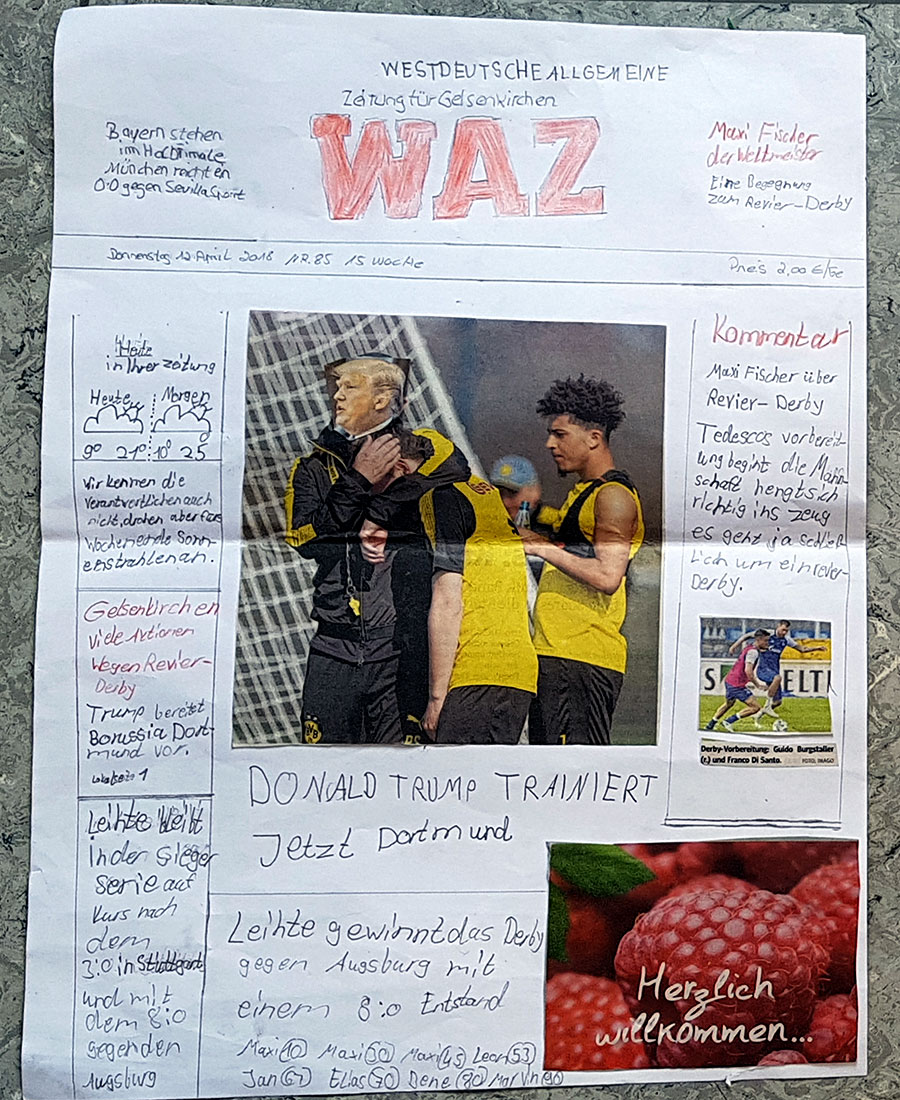 WESTDEUTSCHE ALLGEMEINE
Zeitung für Gelsenkirchen
WAZ
Bayern stehen
im Halbfinale
München reichten
0:0 gegen Sevilla Sport
Maxi Fischer
der Weltmeister
Eine Begegnung
zum Revier-Derby
Donnerstag 12. April 2018 NR.85 15 Woche
Preis 2,00 €
Heute
in Ihrer zeitung
Heute Morgen
9° 21° 10° 25
wir kennen die
verantwortlichen auch
nicht, drohen aber fürs
wochenende Sonn-
enstrahlen an.
Gelsenkirchen
viele Aktionen
wegen Revier-
Derby
Trump bereitet
Borussia Dort-
mund vor.
Lokalseite 1
Leihte bleibt
in der sieger
serie auf
kurs nach
dem
3:0 in Stuttgart
und mit
dem 8:0
gegen den
Augsburg
DONALD TRUMP TRAINIERT
Jetzt Dortmund
Leihte gewinnt das Derby
gegen Augsburg mit
einem 8:0 Entstand
Maxi (10) Maxi (30) Maxi (45) Leon (53)
Jan (67) Elias (70) Dene (80) Marvin (90)
Kommentar
Maxi Fischer über
Revier-Derby
Tedescos vorbereit-
ung begint die Mann-
schaft hengt sich
richtig ins zeug
es geht ja schließ-
lich um ein rever-
Derby.
Derby-Vorbereitung: Guido Burgstaller
(r.) und Franco Di Santo. FOTO: IMAGO
Herzlich
willkommen...